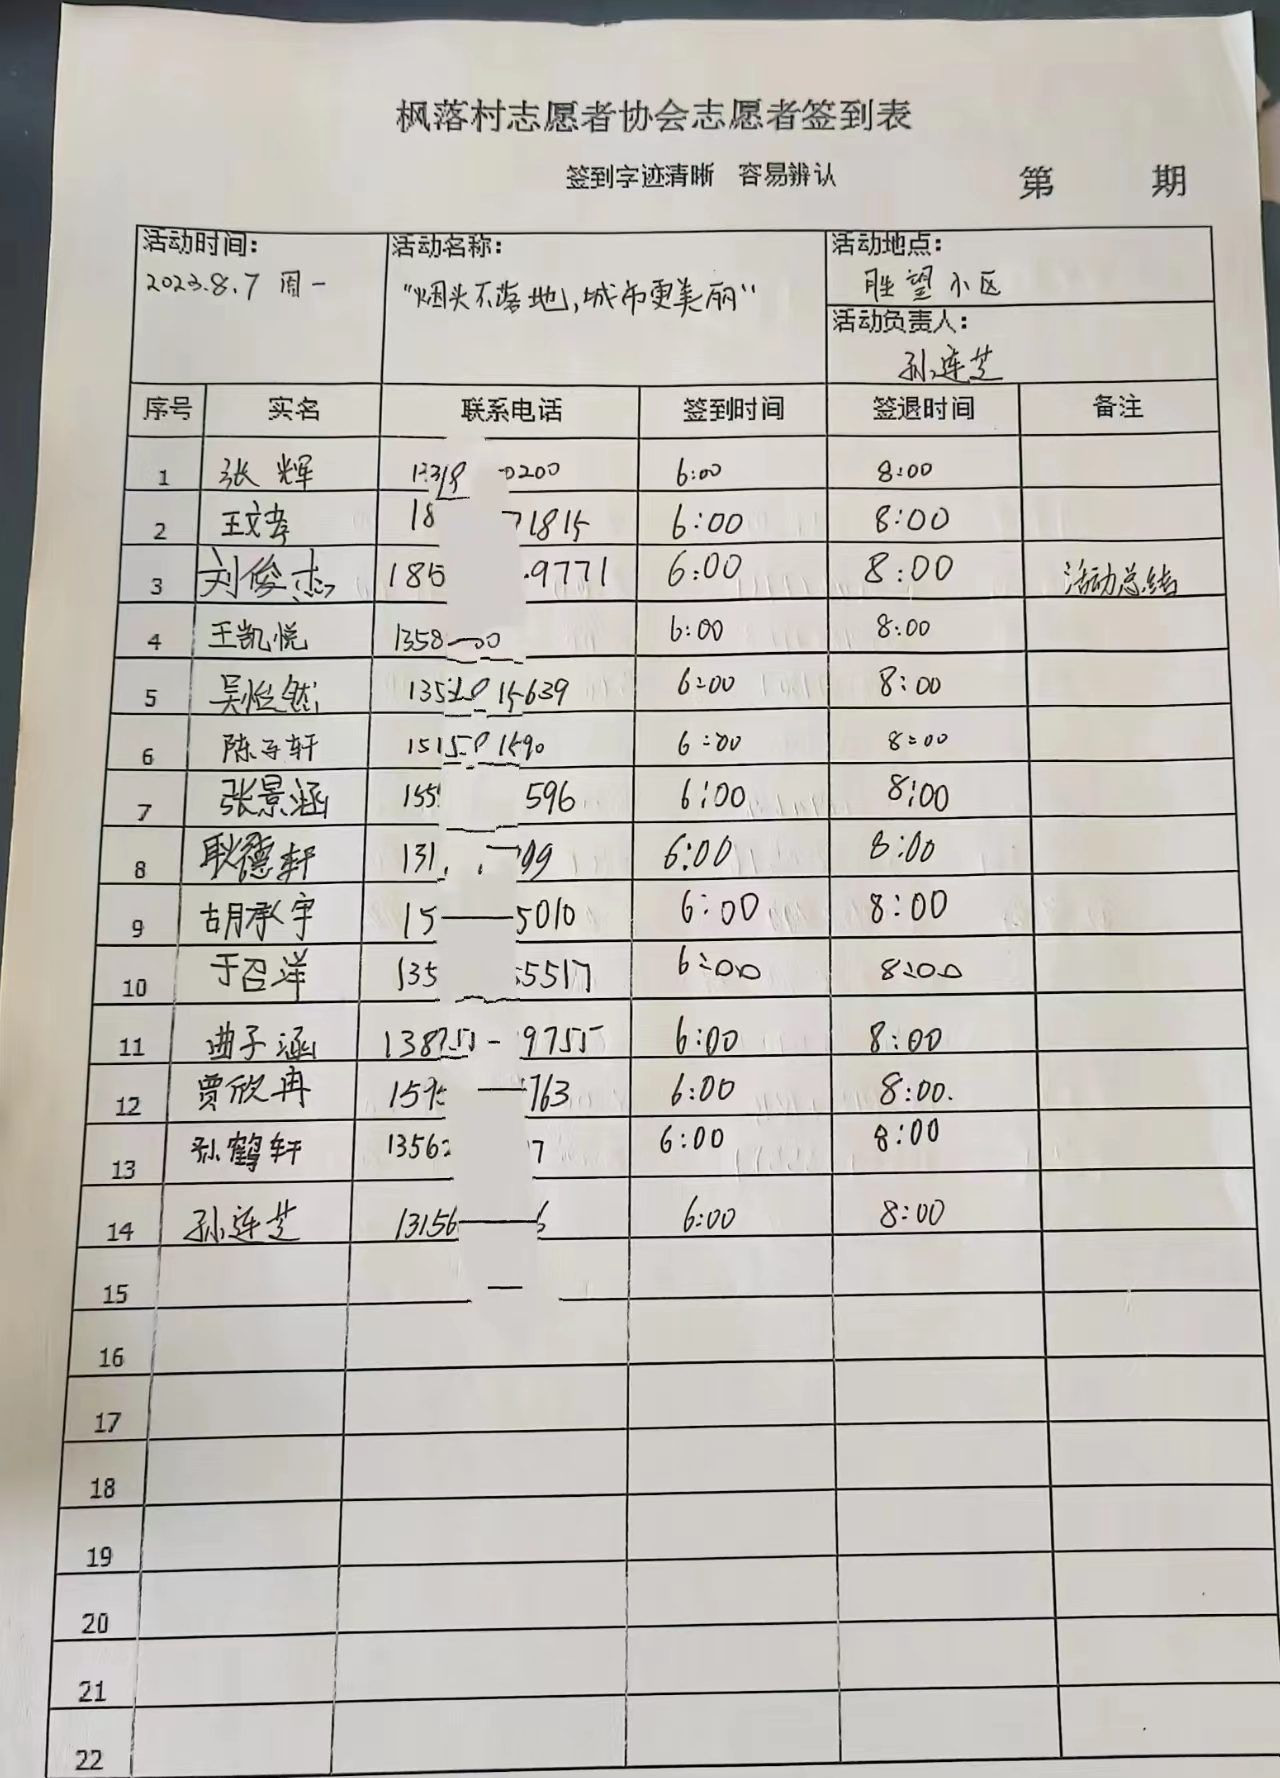 枫落村志愿者协会志愿者签到表
签到字迹清晰 容易辨认
第 期
活动时间: 活动名称: 活动地点:
2023.8.7 周一 “烟头不落地,城市更美丽” 胜望小区
活动负责人:
孙连芝
序号 实名 联系电话 签到时间 签退时间 备注
1 张辉 0200 6:00 8:00
2 王文孝 18 71815 6:00 8:00
3 刘俊杰 185 9771 6:00 8:00 活动总结
4 王凯悦 1358 00 6:00 8:00
5 吴怡然 135 15639 6:00 8:00
6 陈子轩 151 1590 6:00 8:00
7 张景涵 155 596 6:00 8:00
8 耿德轩 131 99 6:00 8:00
9 胡承宇 15 5010 6:00 8:00
10 于召洋 135 5517 6:00 8:00
11 曲子涵 138 9755 6:00 8:00
12 贾欣冉 159 763 6:00 8:00.
13 孙鹤轩 1356 7 6:00 8:00
14 孙连芝 13156 6 6:00 8:00
15
16
17
18
19
20
21
22